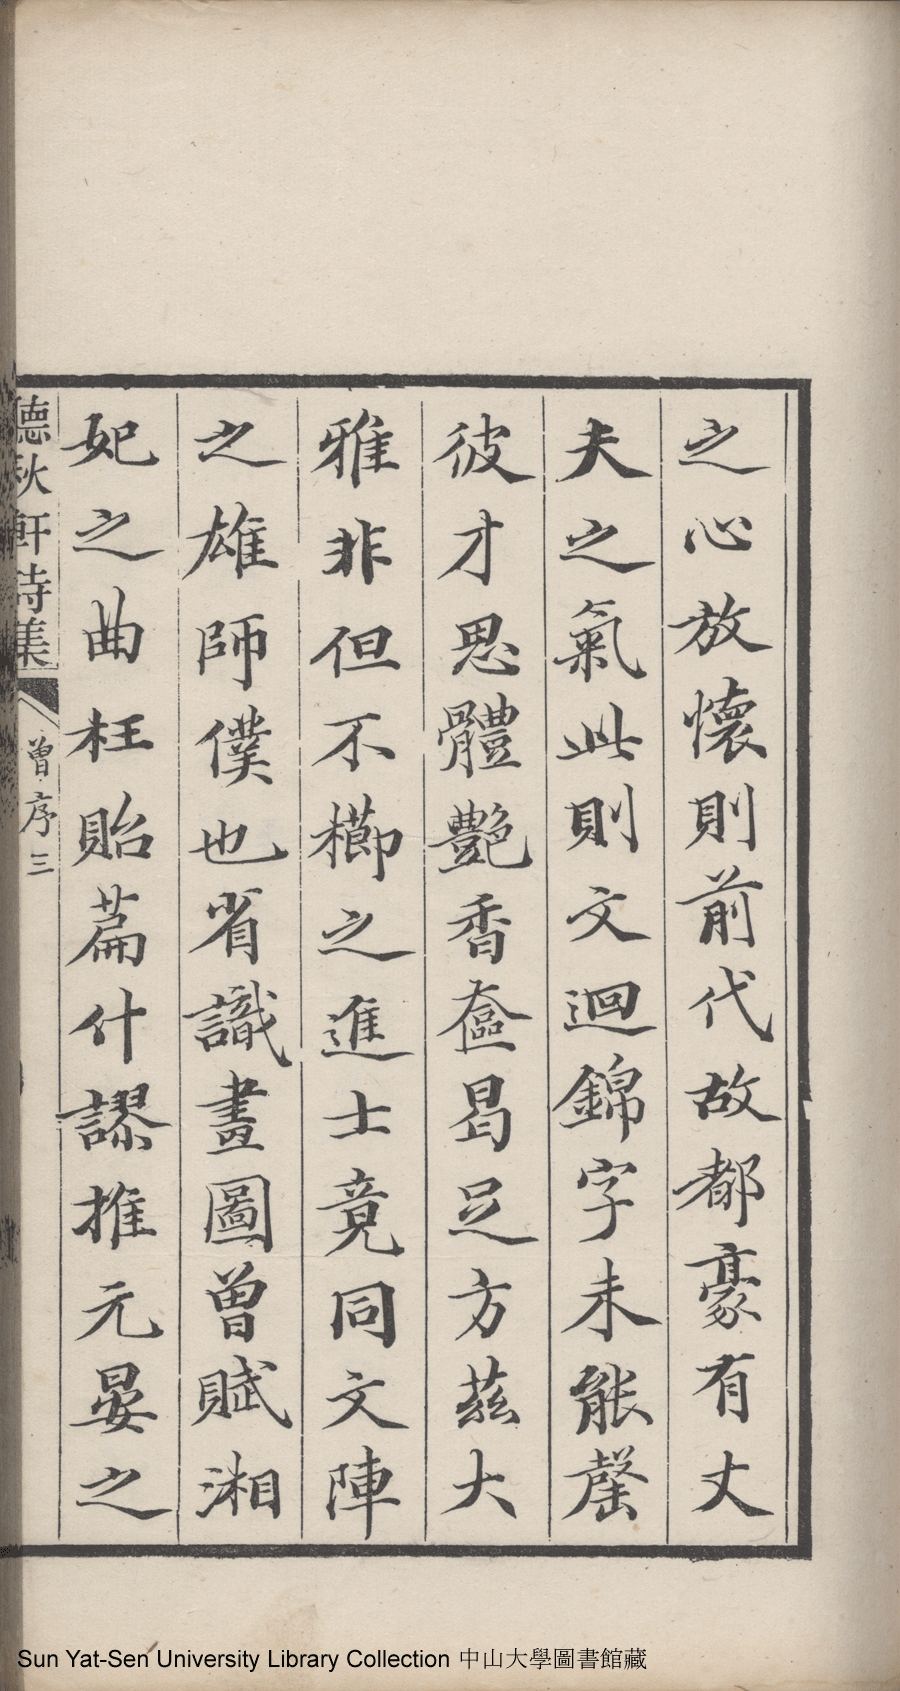 之心放懷則前代故都豪有丈
夫之氣此則文迴錦字未能罄
彼才思體艷香奩曷足方茲大
雅非但不櫛之進士竟同文陣
之雄師僕也省識畫圖曾賦湘
妃之曲枉貽篇什謬推元晏之
聽秋軒詩集 曾序 三
Sun Yat-Sen University Library Collection 中山大學圖書館藏